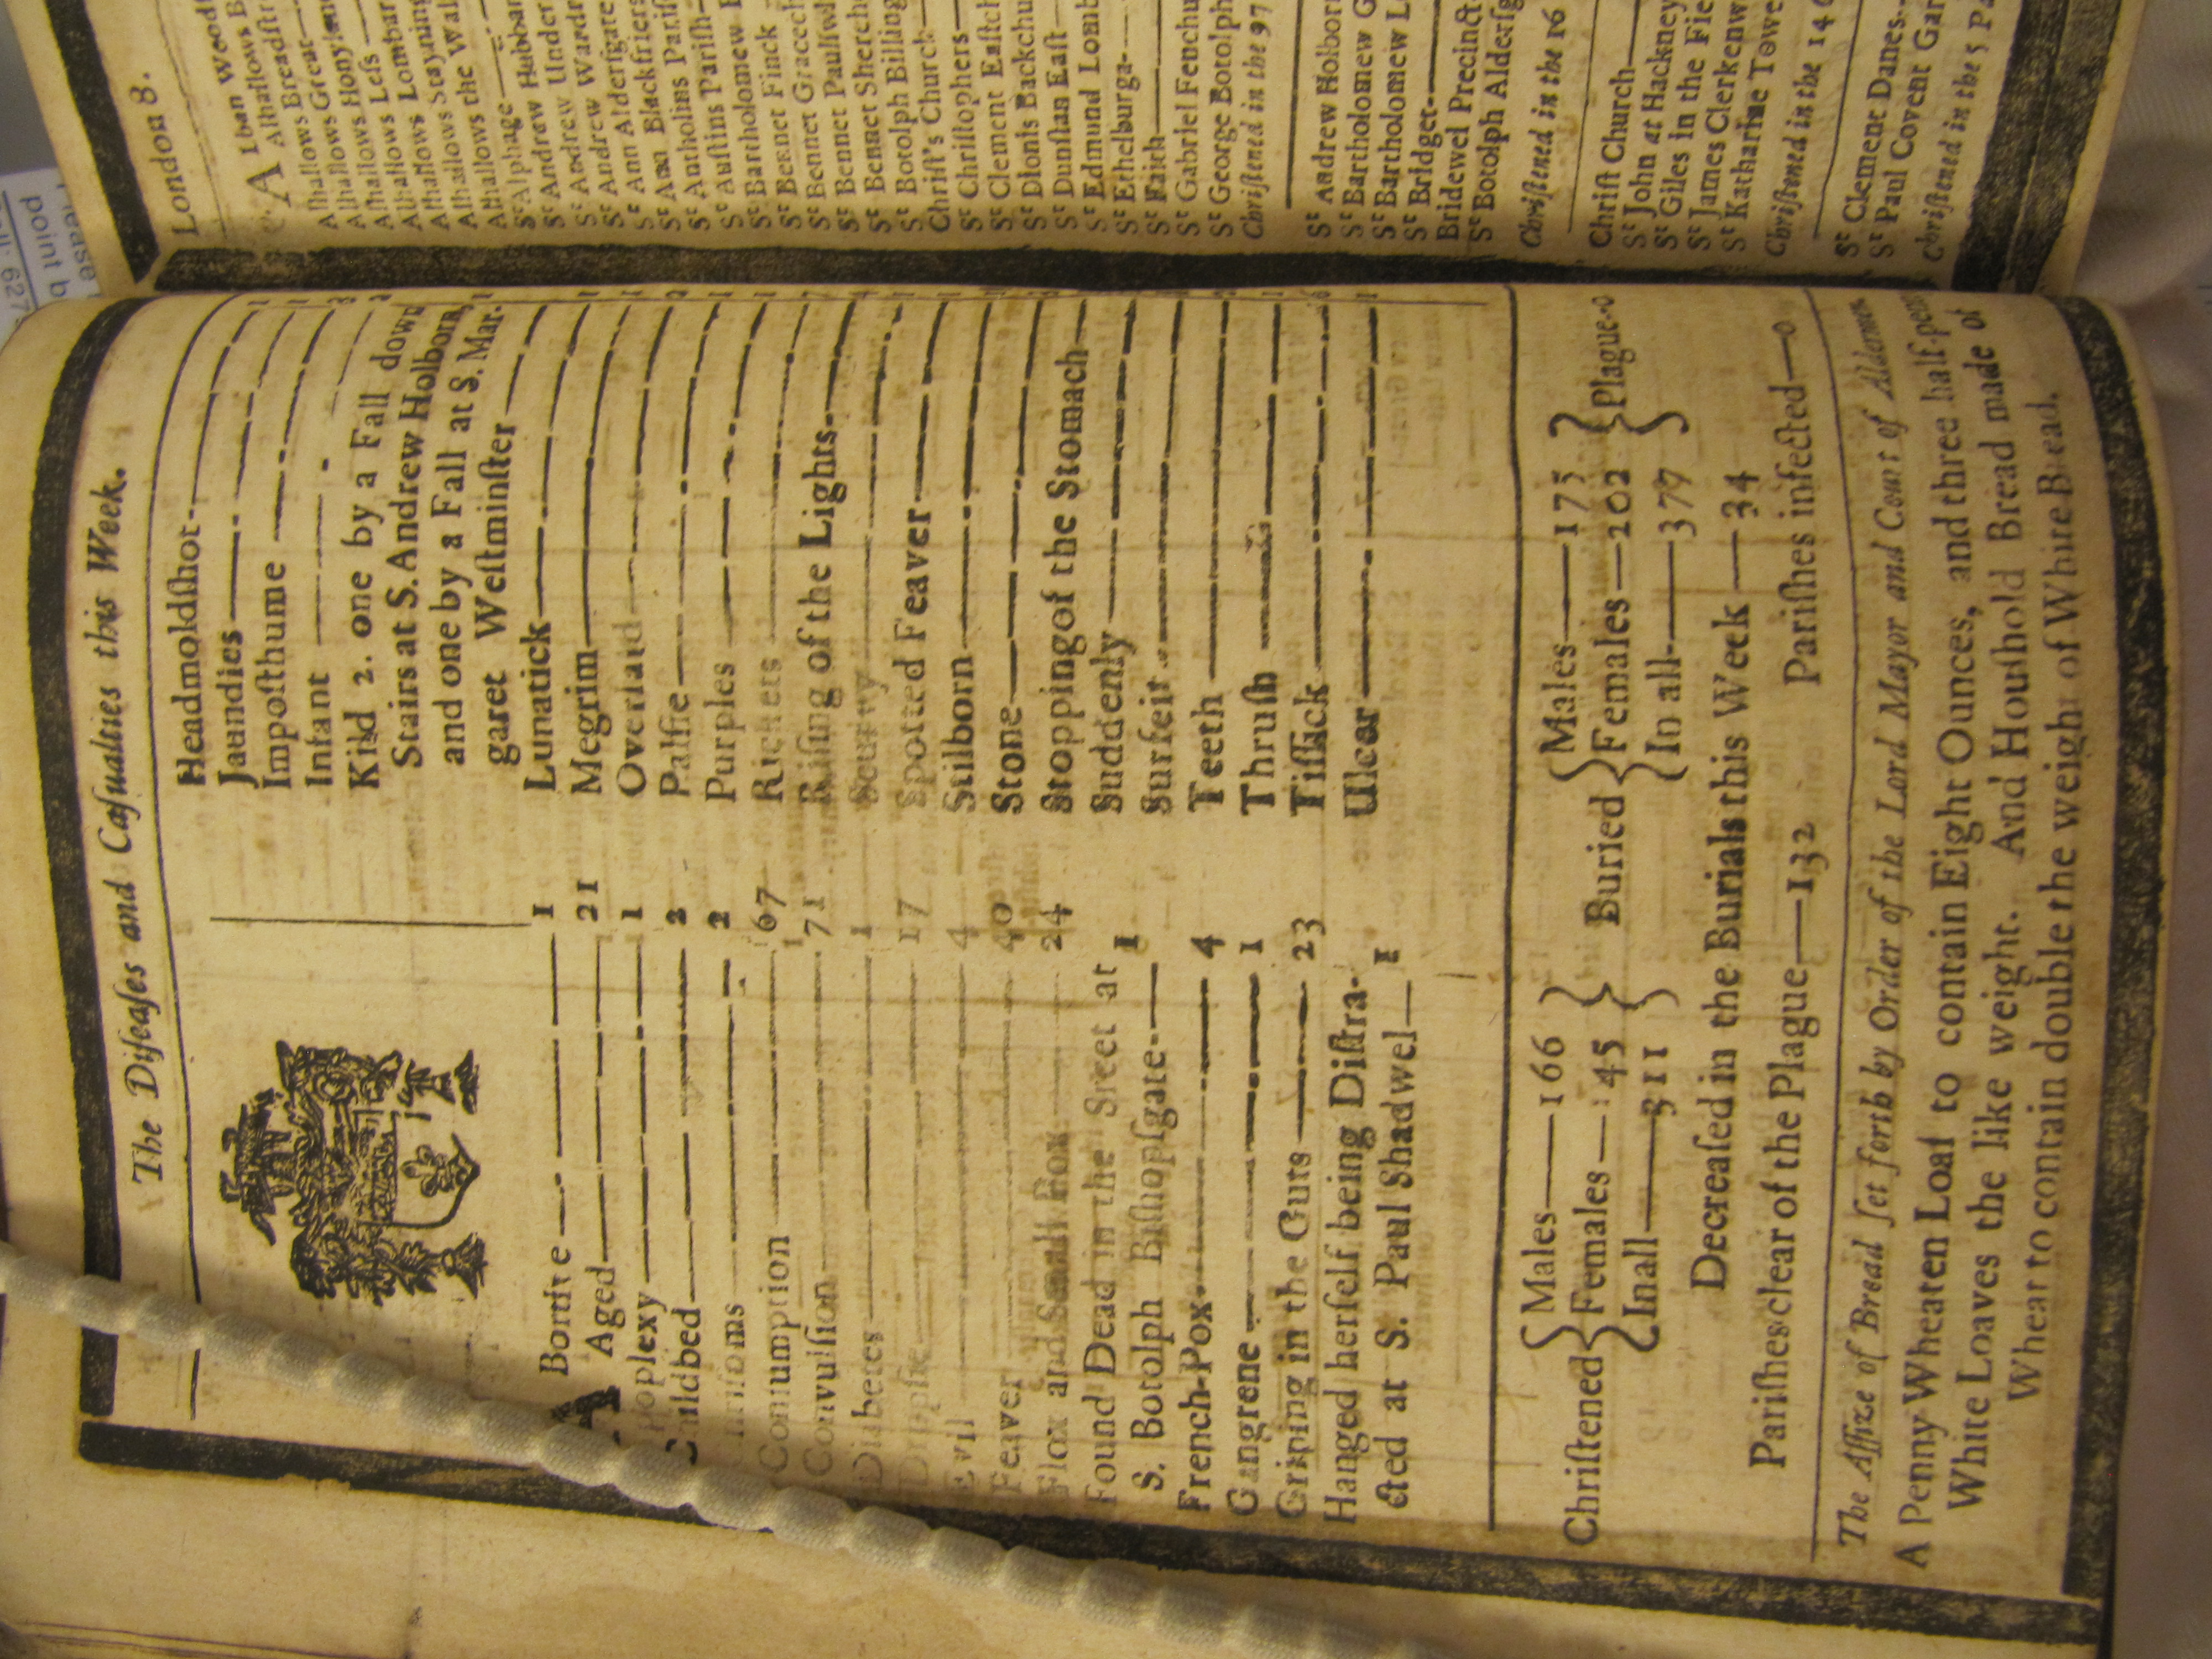 The Diſeaſes and Caſualties this Week.
A Bortive 1
Aged 21
Apoplexy 1
Childbed 2
Chriſoms 2
Conſumption 67
Convulſion 71
Diabetes 1
Dropſie 17
Evil 4
Feaver 40
Flox and Small Pox 24
Found Dead in the Street at
S. Botolph Biſhopſgate 1
French-Pox 4
Gangrene 1
Griping in the Guts 23
Hanged herſelf being Diſtra-
cted at S. Paul Shadwel 1
Headmoldſhot 1
Jaundies 1
Impoſthume
Infant
Kild 2. one by a Fall down
Stairs at S. Andrew Holborn,
and one by a Fall at S. Mar-
garet Weſtminſter
Lunatick 1
Megrim 1
Overlaid 1
Palſie 2
Purples 1
Rickets
Riſing of the Lights
Scurvy
Spotted Feaver
Stilborn
Stone
Stopping of the Stomach
Suddenly
Surfeit
Teeth
Thruſh
Tiſſick
Ulcer
Chriſtened Males 166
Females 145
In all 311
Buried Males 175
Females 202
In all 377
Plague 0
Decreaſed in the Burials this Week 34
Pariſhes clear of the Plague 132 Pariſhes infected 0
The Aſſize of Bread ſet forth by Order of the Lord Mayor and Court of Aldermen
A Penny Wheaten Loaf to contain Eight Ounces, and three half-peny
White Loaves the like weight. And Houſhold Bread made of
Wheat to contain double the weight of White Bread.
London 8.
Alban Woodſ
Alhallows B
Alhallows Breadſtr
Alhallows Great
Alhallows Hony
Alhallows Leſs
Alhallows Lombar
Alhallows Stayning
Alhallows the Wal
St Alphage
St Andrew Hubbar
St Andrew Under
St Andrew Wardr
St Ann Alderſgate
St Ann Blackfriers
St Antholins Pariſh
St Auſtins Pariſh
St Bartholomew E
St Bennet Finck
St Bennet Gracech
St Bennet Paulſwh
St Bennet Shereh
St Botolph Billing
Chriſt's Church
St Chriſtophers
St Clement Eaſtch
St Dionis Backchu
St Dunſtan Eaſt
St Edmund Lomb
St Ethelburga
St Faith
St Gabriel Fenchu
St George Botolph
Chriſtened in the 97
St Andrew Holborn
St Bartholomew G
St Bartholomew L
St Bridget
Bridewel Precinct
St Botolph Alderſg
Chriſtened in the 16
Chriſt Church
St John at Hackney
St Giles in the Fie
St James Clerkenw
St Katharine Towe
Chriſtened in the 14
St Clement Danes
St Paul Covent Gar
Chriſtened in the 5 Pa